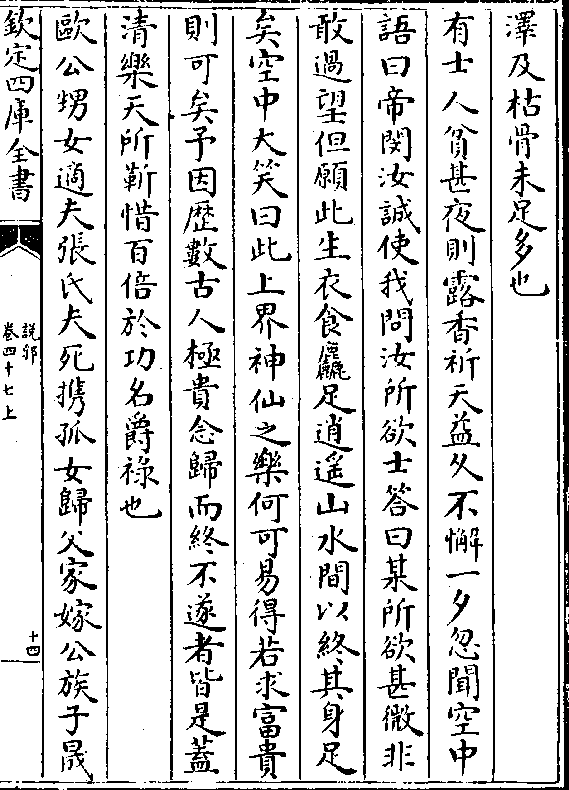 澤及枯骨未足多也
有士人貧甚夜則露香祈天益久不懈一夕忽聞空中
語曰帝閔汝誠使我問汝所欲士答曰某所欲甚微非
敢過望但願此生衣食麤足逍遙山水間以終其身足
矣空中大笑曰此上界神仙之樂何可易得若求富貴
則可矣予因歴數古人極貴念歸而終不遂者皆是葢
清樂天所靳惜百倍於功名爵祿也
歐公甥女適夫張氏夫死攜孤女歸父家嫁公族子晟
欽定四庫全書
說郛
卷四十七上
十四